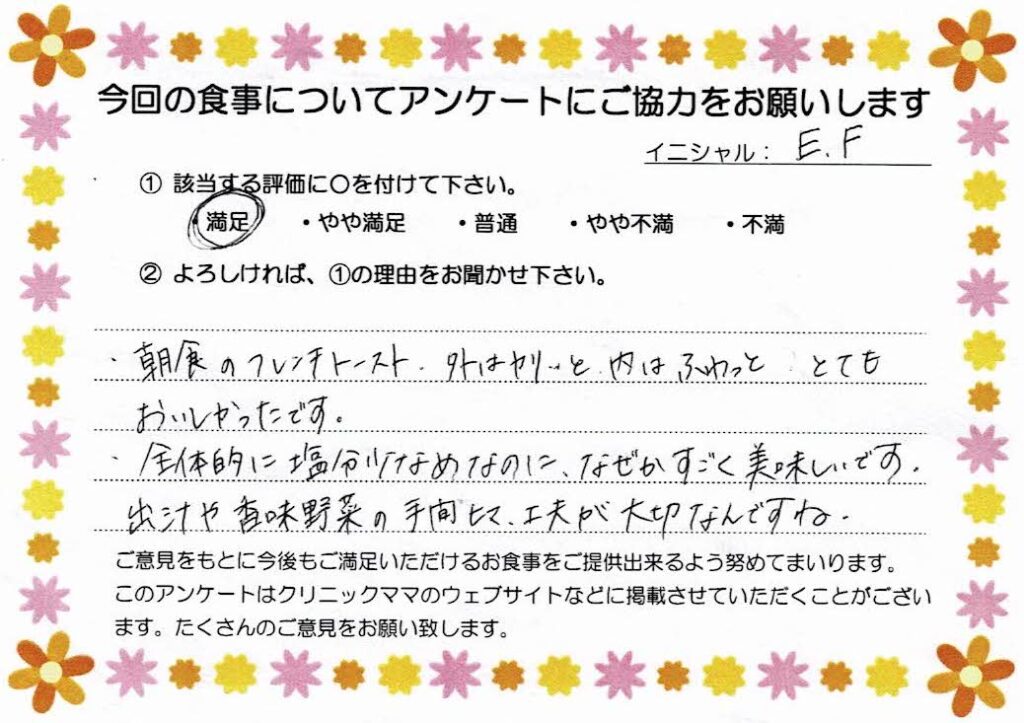 今回の食事についてアンケートにご協力をお願いします
イニシャル： E.F
① 該当する評価に〇を付けて下さい。
・満足 ・やや満足 ・普通 ・やや不満 ・不満
② よろしければ、①の理由をお聞かせ下さい。
・朝食のフレンチトースト.外はカリッと.内はふわっと とても
おいしかったです。
・全体的に塩分少なめなのに、なぜかすごく美味しいです.
出汁や香味野菜の手間 工夫が大切なんですね.
ご意見をもとに今後もご満足いただけるお食事をご提供出来るよう努めてまいります。
このアンケートはクリニックママのウェブサイトなどに掲載させていただくことがござい
ます。たくさんのご意見をお願い致します。